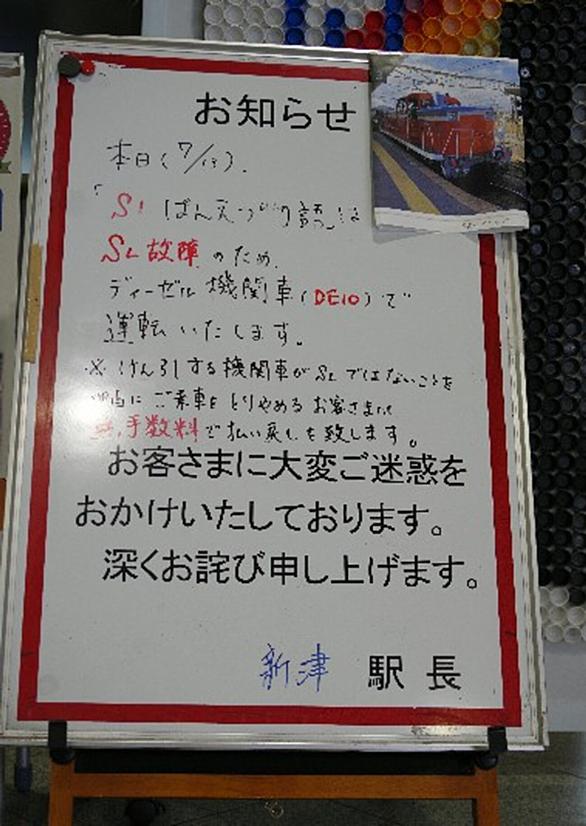 お知らせ
本日(7/13).
「SL ばんえつ物語」は
SL故障のため.
ディーゼル機関車(DE10)で
運転いたします。
※ けん引する機関車がSLではないことを
理由にご乗車をとりやめるお客さまは
無手数料で払い戻しを致します。
お客さまに大変ご迷惑を
おかけいたしております。
深くお詫び申し上げます。
新津 駅長